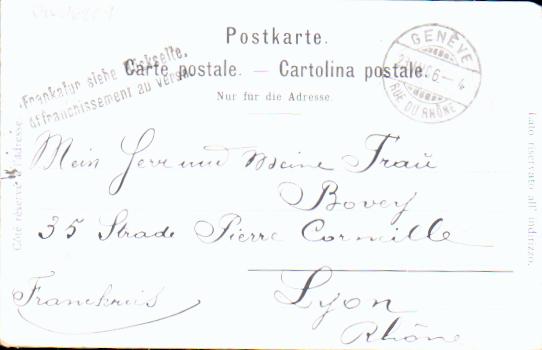 Postkarte.
Carte postale. — Cartolina postale.
Nur für die Adresse.
Frankatur siehe Rückseite.
Affranchissement au verso.
GENÈVE
RUE DU RHÔNE
Côté réservé à l'adresse
Lato riservato all' indirizzo.
Mein Herr und Meine Fraü
Bovey
35 Strade Pierre Corneille
Lyon
Franckreis
Rhône